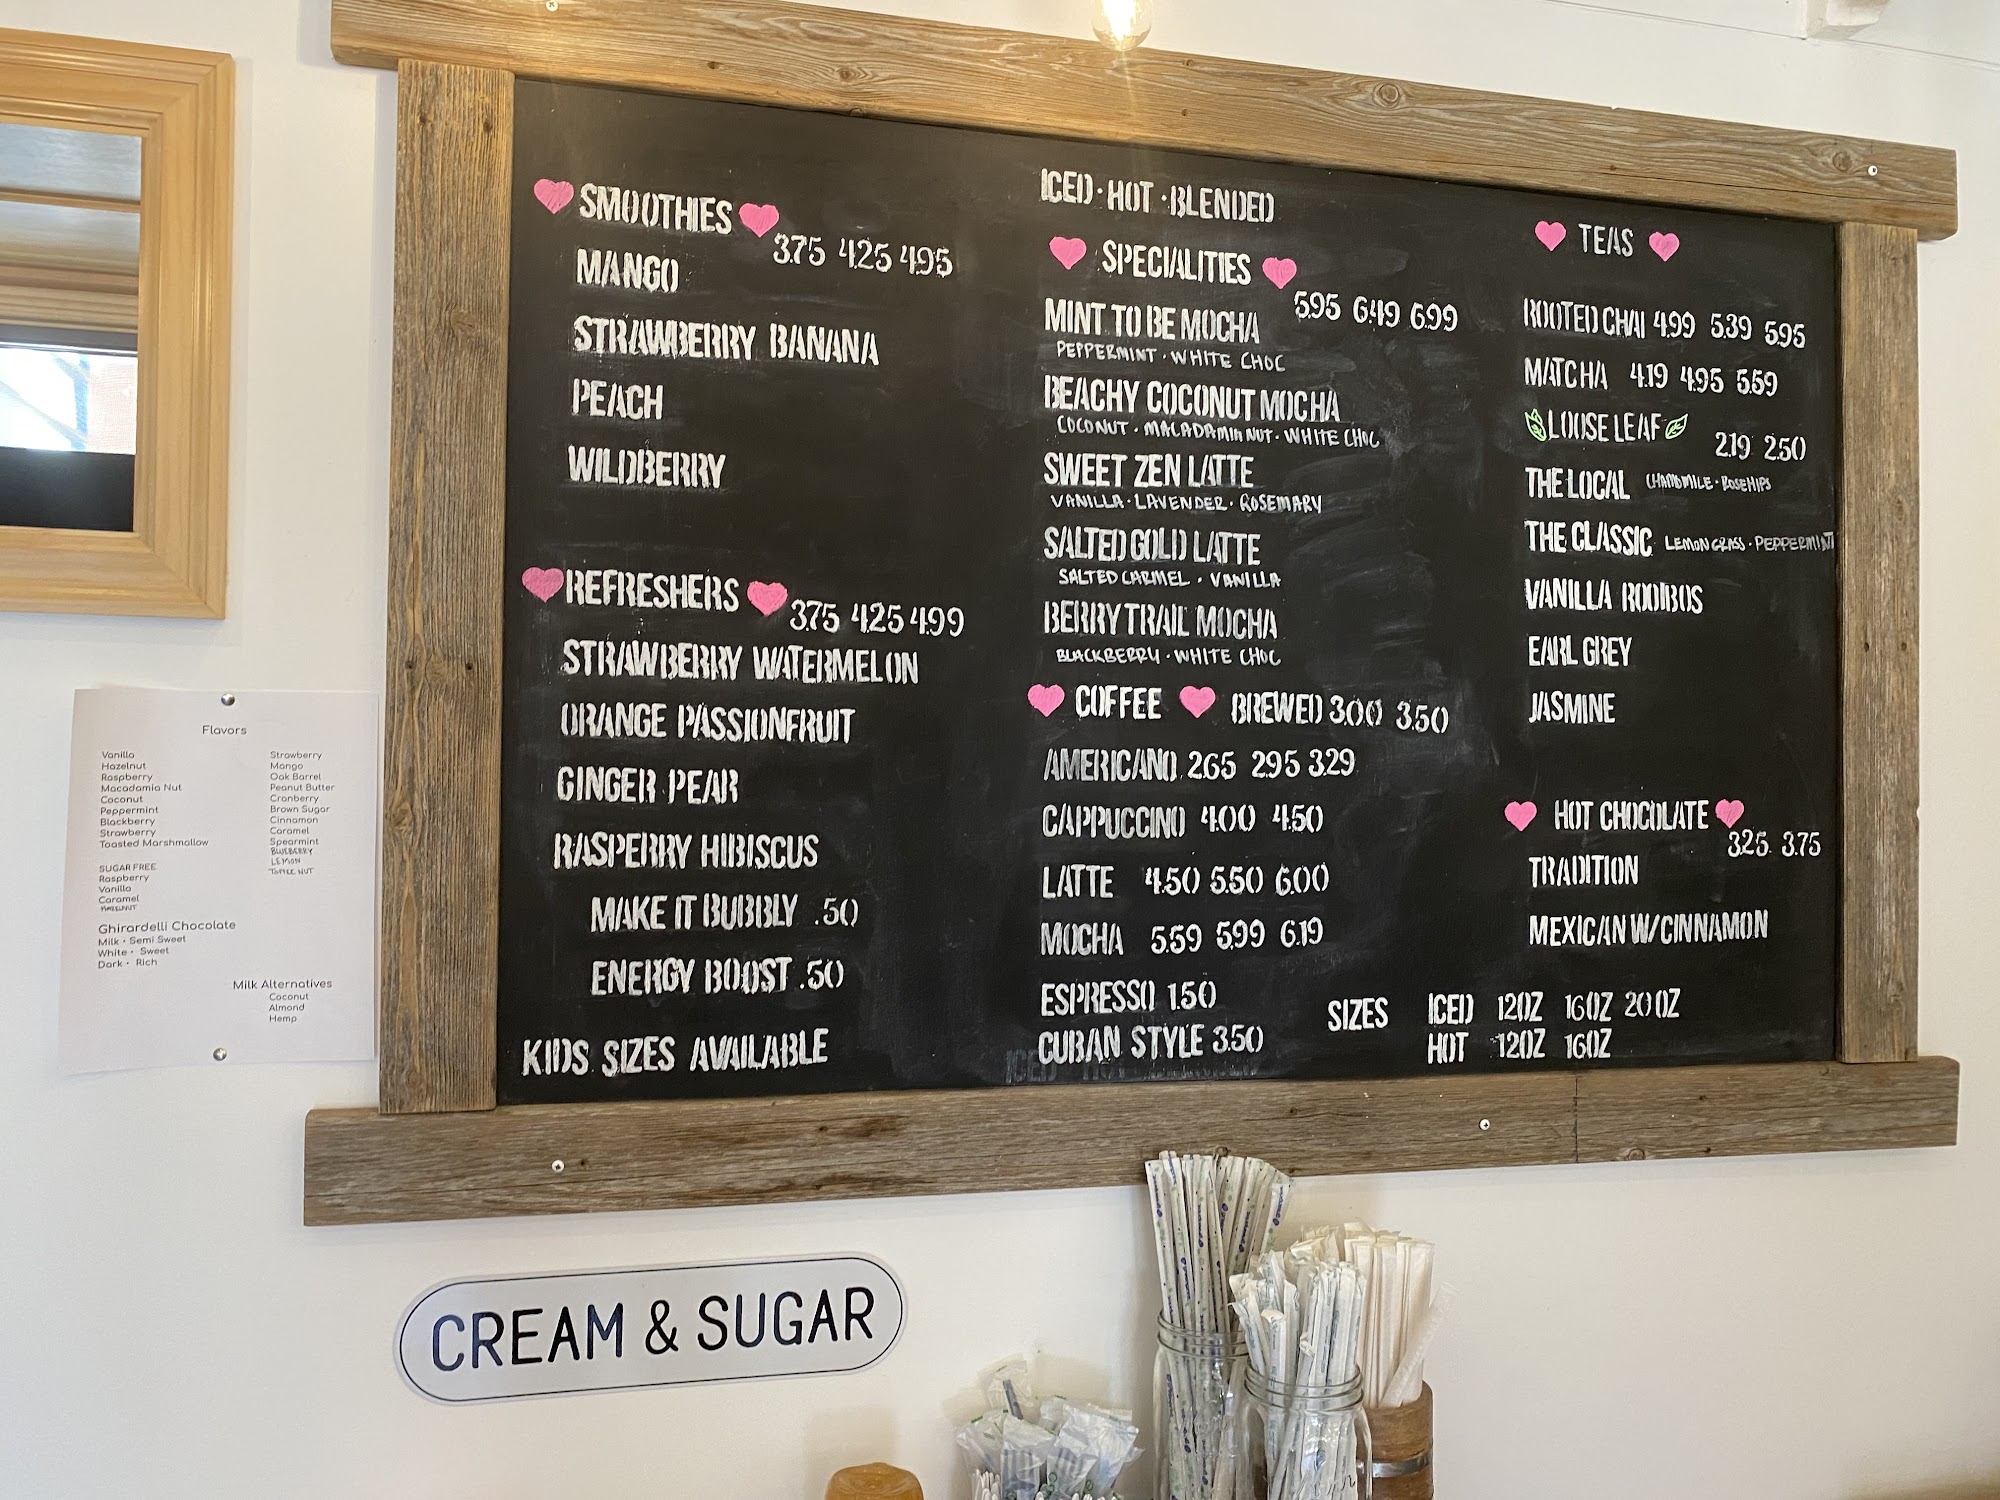 SMOOTHIES
3.75 4.25 4.95
MANGO
STRAWBERRY BANANA
PEACH
WILDBERRY
REFRESHERS
3.75 4.25 4.99
STRAWBERRY WATERMELON
ORANGE PASSIONFRUIT
GINGER PEAR
RASPERRY HIBISCUS
MAKE IT BUBBLY .50
ENERGY BOOST .50
KIDS SIZES AVAILABLE
ICED · HOT · BLENDED
SPECIALITIES
5.95 6.49 6.99
MINT TO BE MOCHA
PEPPERMINT · WHITE CHOC
BEACHY COCONUT MOCHA
COCONUT · MACADAMIA NUT · WHITE CHOC
SWEET ZEN LATTE
VANILLA · LAVENDER · ROSEMARY
SALTED GOLD LATTE
SALTED CARMEL · VANILLA
BERRY TRAIL MOCHA
BLACKBERRY · WHITE CHOC
COFFEE BREWED 3.00 3.50
AMERICANO 2.65 2.95 3.29
CAPPUCCINO 4.00 4.50
LATTE 4.50 5.50 6.00
MOCHA 5.59 5.99 6.19
ESPRESSO 1.50
CUBAN STYLE 3.50
TEAS
ROOTED CHAI 4.99 5.39 5.95
MATCHA 4.19 4.95 5.59
LOOSE LEAF
2.19 2.50
THE LOCAL CHAMOMILE · ROSEHIPS
THE CLASSIC LEMONGRASS · PEPPERMINT
VANILLA ROOIBOS
EARL GREY
JASMINE
HOT CHOCOLATE
3.25 3.75
TRADITION
MEXICAN W/CINNAMON
SIZES ICED 12OZ 16OZ 20OZ
HOT 12OZ 16OZ
Flavors
Vanilla
Hazelnut
Raspberry
Macadamia Nut
Coconut
Peppermint
Blackberry
Strawberry
Toasted Marshmallow
SUGAR FREE
Raspberry
Vanilla
Caramel
HAZELNUT
Strawberry
Mango
Oak Barrel
Peanut Butter
Cranberry
Brown Sugar
Cinnamon
Caramel
Spearmint
BLUEBERRY
LEMON
TOFFEE NUT
Ghirardelli Chocolate
Milk · Semi Sweet
White · Sweet
Dark · Rich
Milk Alternatives
Coconut
Almond
Hemp
CREAM & SUGAR